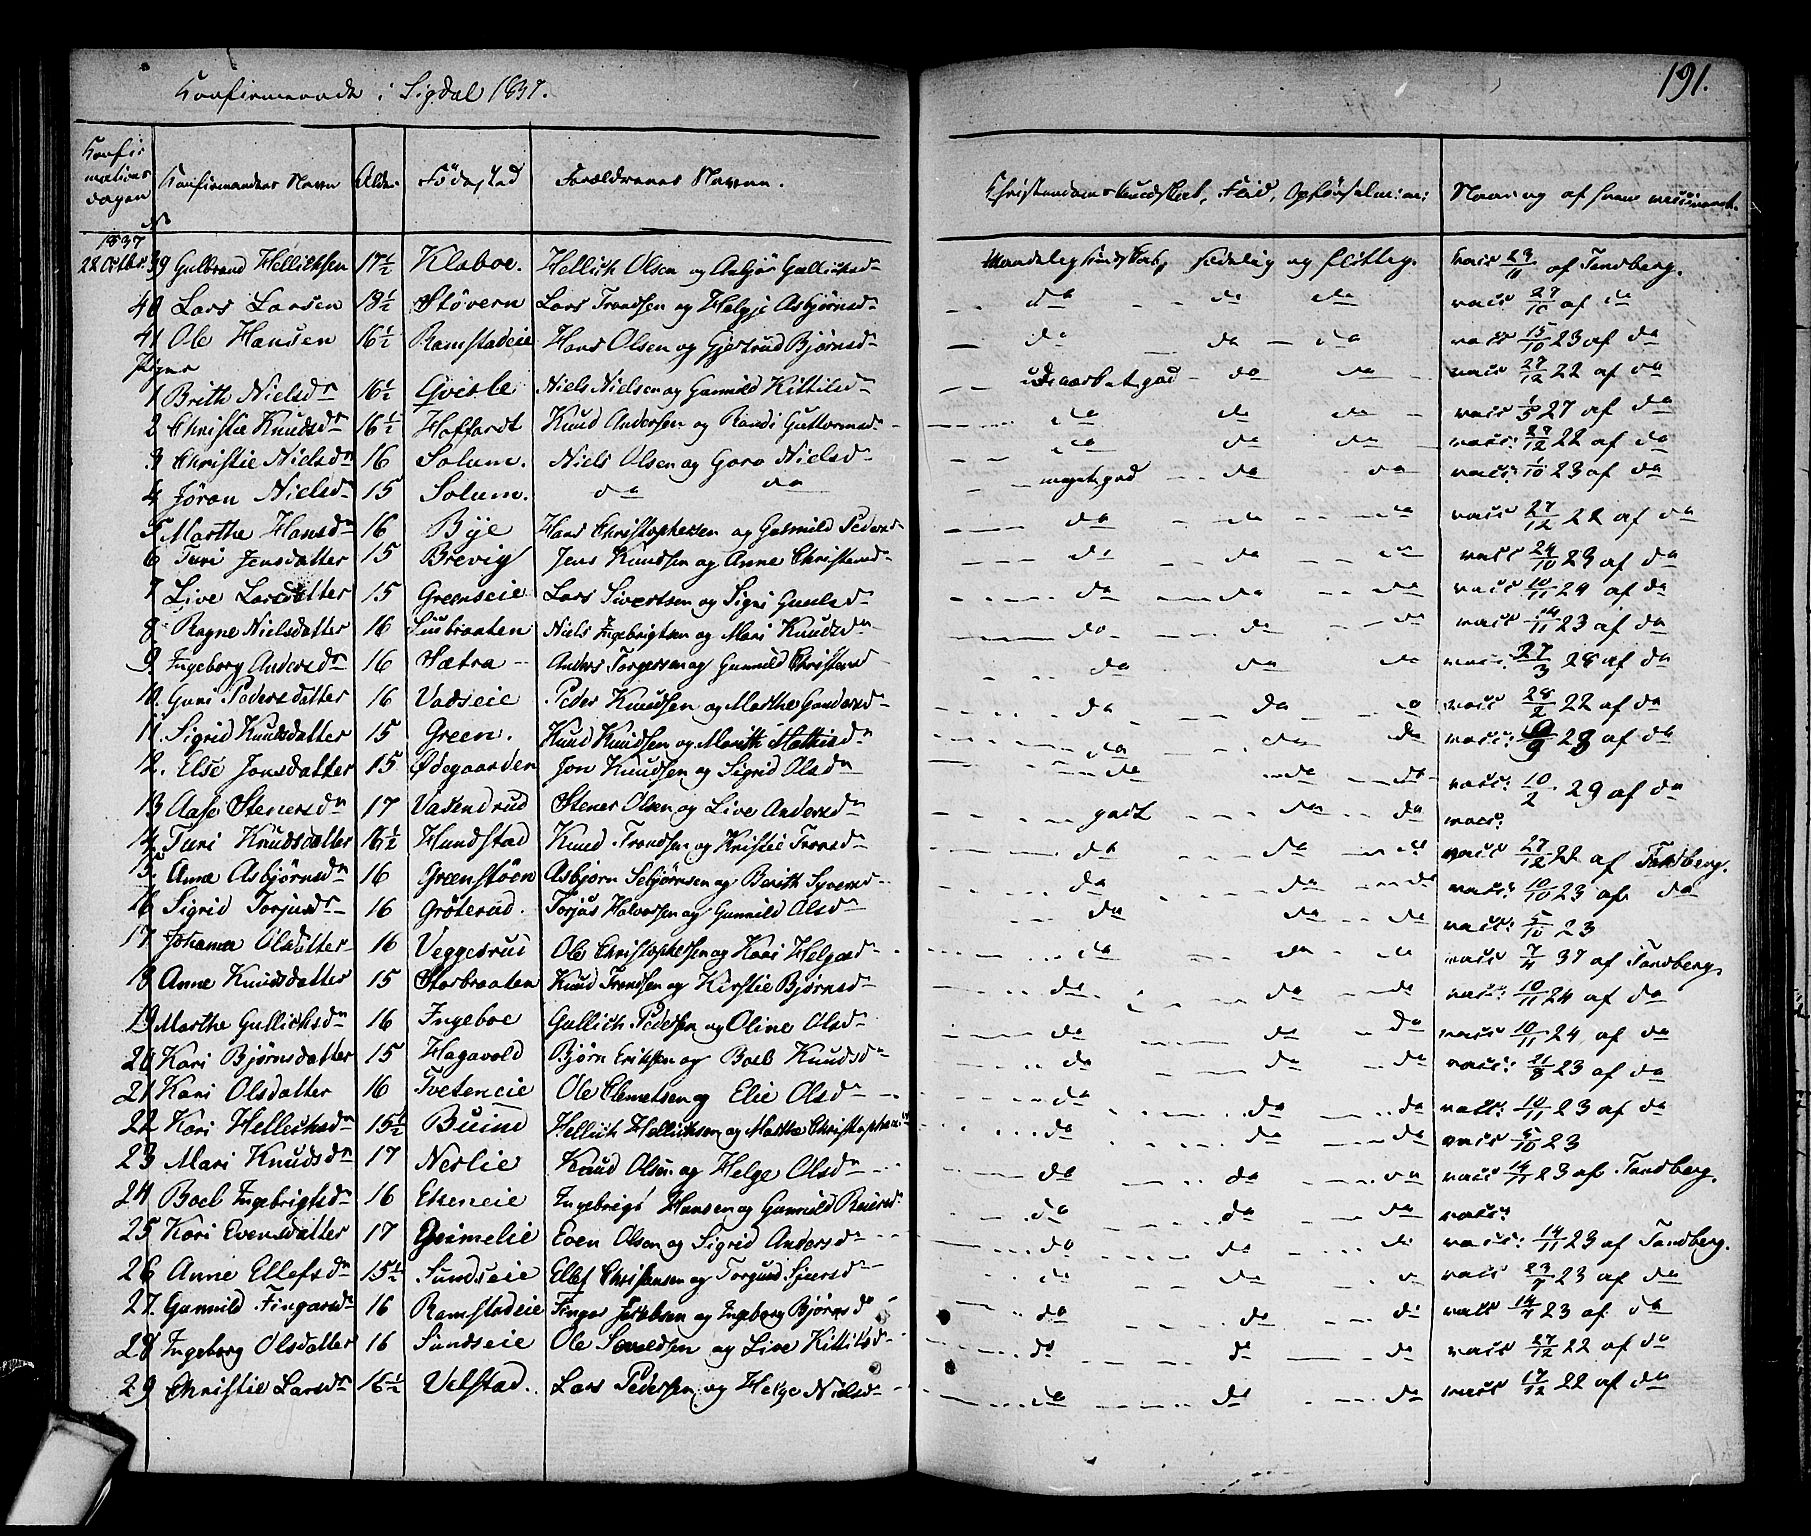 Konfirmerede i Sigdal 1837.
191.
Konfirmations dagen No | Konfirmandens Navn | Alder | Födestad | Forældrenes Navne. | Christendoms Kundskab, Flid, Opførsel | Naar og af hvem vaccineret.
1837
22 Octbr. 39 Gulbrand Hellichsen 17½ Kloboe. Hellich Olsen og Aabjör Gullichsd Maadelig Kundskab, sædelig og flittig. vacc 29/11 af Tandberg.
40 Lars Larsen 18½ Støvern Lars Trondsen og Helgje Asbjörnsd do do do vacc af do
41 Ole Hansen 16½ Ramstadeie Hans Olsen og Gjertrud Björnsd do do do vacc 15/10 23 af do
Piger
1 Brith Nielsdr 16½ Qvisle Niels Nielsen og Gunnild Kittilsd udmærket god do do vacc 27/12 22 af do
2 Christie Knudsdr 16½ Hoffardt Knud Andersen og Randi Guttormsd do do do vacc: 1/5 27 af do
3 Christie Nielsdr 16 Solum. Niels Olsen og Goro Nielsd do do do vacc: 27/12 22 af do
4 Jöran Nielsdr 15 Solum. do do meget god do do vacc: 1/10 23 af do
5 Marthe Hansdr 16 Bye Hans Christophersen og Gunnild Pedersd do do do vacc 27/12 22 af do
6 Turi Jensdatter 15 Brevig Jens Knudsen og Anne Christensd do do do vacc 24/10 23 af do
7 Live Larsdatter 15 Greenseie Lars Sivertsen og Signi Gunlsd do do do vacc 10/11 24 af do
8 Ragne Nielsdatter 16 Siusbraaten Niels Ingebrigtsen og Mari Knudsd do do do vacc 14/11 23 af do
9 Ingeborg Andersdr 16 Sætra Anders Torgersen og Gunnild Christensd do do do vacc: 27/3 28 af do
10. Guri Pedersdatter 16 Vadseie Peder Knudsen og Marthe Gundersd do do do vacc 28/2 22 af do
11. Sigrid Knudsdatter 15 Green. Knud Knudsen og Marith Mathisd do do do vacc: 9/9 23 af do
12. Else Jonsdatter 15 Ødegaarden Jon Knudsen og Sigrid Olsd do do do vacc: 10/2 29 af do
13 Aase Stenersdr 17 Vadendrud Stener Olsen og Live Andersd godt do do vacc:
14 Turi Knudsdatter 16½ Hundstad Knud Trondsen og Kristie Trondsd do do do vacc 27/12 22 af Tandberg.
15. Anne Asbjörnsdr 16 Greenstöen Asbjörn Sebjörnsen og Berith Syversd do do do vacc: 10/10 23 af do
16 Sigrid Torjusdr 16 Gröterud. Torjus Halvorsen og Gunnild Olsd do do do vacc: 5/10 23
17 Johanna Olsdatter 16 Veggesrud Ole Christophersen og Kari Helgesd do do do vacc 7/4 37 af Tandberg.
18 Anne Knudsdatter 15 Storbraaten Knud Trondsen og Kirstie Björnsd do do do vacc: 10/11 24 af do
19 Marthe Gullichsdr 16 Ingeboe Gullich Pedersen og Oline Olsd do do do vacc 10/11 24 af do
20 Kari Björnsdatter 15 Hagavold Björn Eriksen og Boel Knudsd do do do vacc: 21/8 23 af do
21 Kari Olsdatter 16 Tveteneie Ole Clemetsen og Elie Olsd do do do vacc: 10/11 23 af do
22 Kari Hellichsdr 15½ Buind Hellich Hellichsen og Marthe Christophersd do do do vacc 5/10 23
23 Mari Knudsdr 17 Neslie Knud Olsen og Helge Olsd do do do vacc 14/11 23 af Tandberg.
24 Boel Ingebrigtsdr 16 Ekeneie Ingebrigt Hansen og Gunnild Reiersd do do do vacc:
25 Kari Evensdatter 17 Grimelie Even Olsen og Sigrid Andersd do do do vacc: 14/11 23 af Tandberg.
26 Anne Ellefsdr 15½ Sundseie Ellef Christensen og Torgund Sjursd do do do vacc 23 af do
27. Gunnild Fingarsdr 16 Ramstadeie Fingar Jacobsen og Ingeborg Björnsd do do do vacc 23 af do
28 Ingeborg Olsdatter 16 Sundseie Ole Sevaldsen og Live Kittilsd do do do vacc 27/12 22 af do
29 Christie Larsdr 16½ Velstad. Lars Pedersen og Helge Nielsd do do do vacc 17/12 22 af do